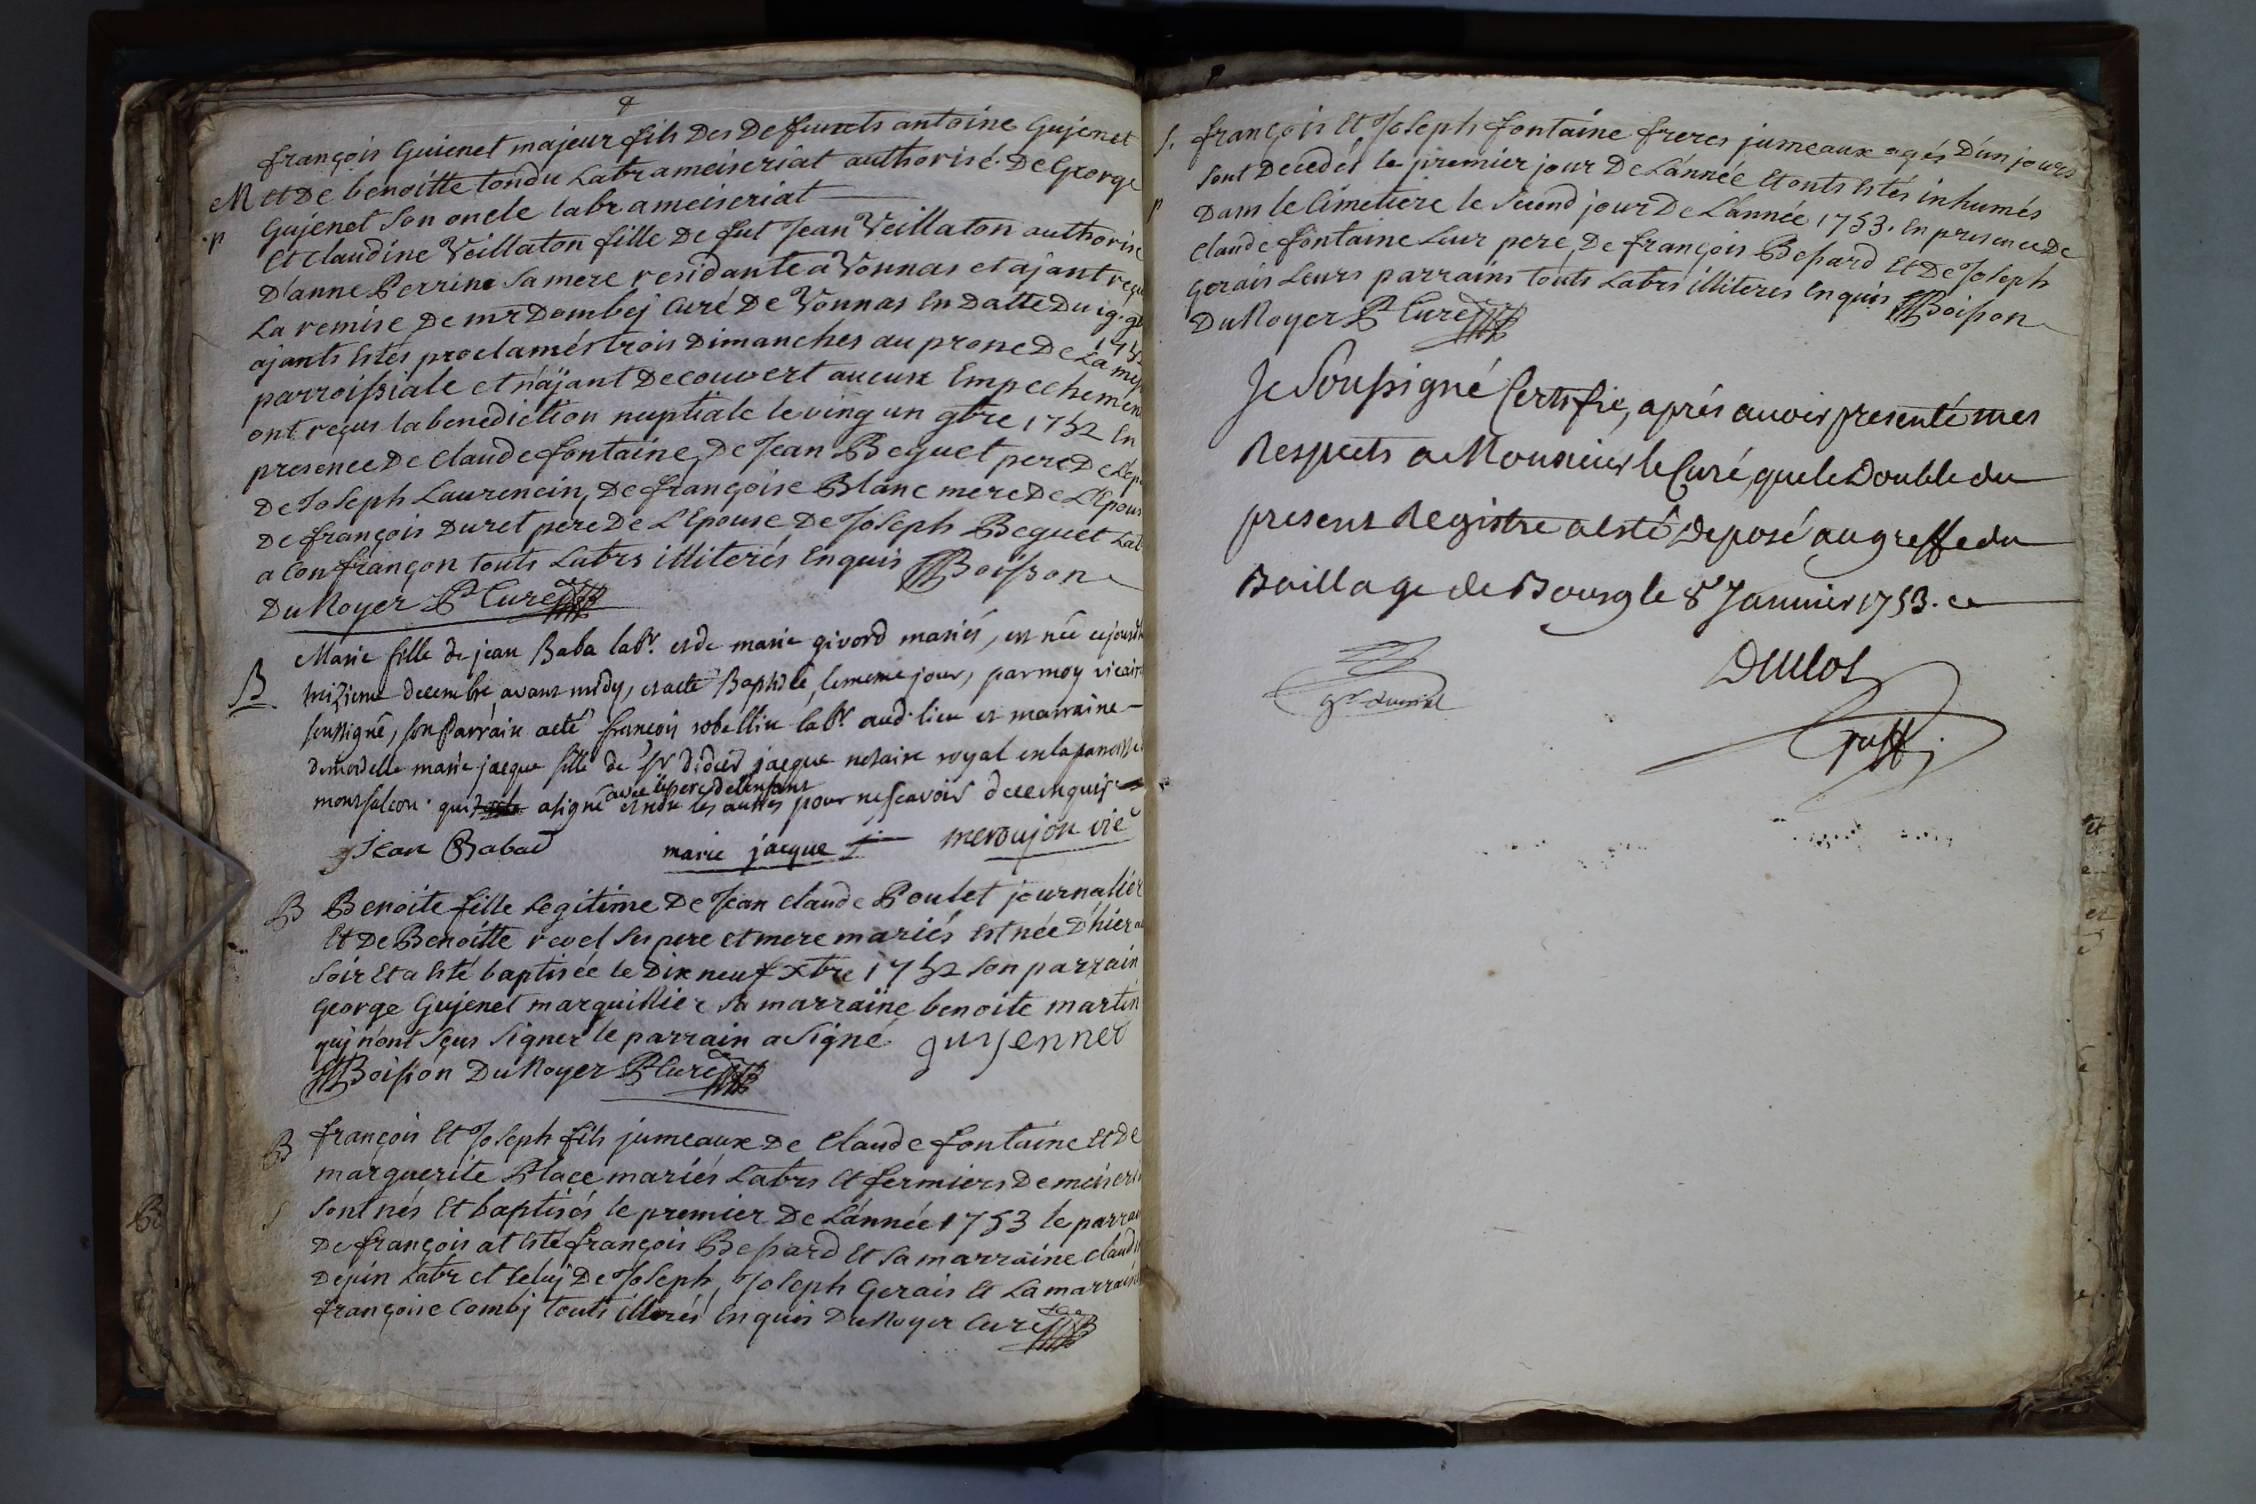 françois Guienet majeur fils Des Deffuncts antoine Gujenet
M et De benoitte tondu Labr a meiseriat authorisé. De George
p Gujenet Son oncle labr a meiseriat
et Claudine Veillaton fille De fut Jean Veillaton authorisé
D'anne Perrine Sa mere residante a Vonnas et ajant reçu
La remise De mr Dombej Curé De Vonnas En Datte Du 19. 9b 1752
ajants Estés proclamés trois Dimanches au prone De La mess
parroissiale et n'ajant Decouvert aucun Empechemen
ont reçus la benediction nuptiale le ving un 9bre 1752 En
presence De Claude fontaine, De Jean Beguet pere De L'Ep
De Joseph Laurencin, De françoise Blanc mere De L'Epous
De françois Duret pere De L'Epouse, De Joseph Beguet Lab
a Confrançon touts Labrs illiterés Enquis Boisson
Du Noyer P Curé
Marie fille de jean Baba labr. et de marie givord mariés, est née cejourd
B treizieme decembre, avant midy, et a eté Baptisée, le meme jour, par moy vicaire
soussigné, son Parrain a eté françois robellin labr. aud. lieu et marraine
demoidelle marie jacque fille de Sr didier jacque notaire royal en la paroisse
montfalcon qui a signé avec le pere de l'enfant et non les autres pour ne scavoir de ce enquis
Jean Babad marie jacque meroujon vic
B Benoite fille Legitime De Jean Claude Poulet journalier
Et De Benoitte revel Ses pere et mere mariés Est née D'hier au
Soir Et a Esté baptisée le Dix neuf xbre 1752 Son parrain
George Gujenet marguillier Sa marraine benoite martin
quj n'ont Sçus Signer le parrain a Signé guyennet
Boisson Du Noyer P Curé
B françois Et Joseph fils jumeaux De Claude fontaine Et De
marguerite Place mariés Labrs Et fermiers De meiseri
S Sont nés Et baptisés le premier De L'année 1753 le parrai
De françois at Esté françois Bessard Et Sa marraine Claud
Depin Labr et Celuj De Joseph, Joseph Gerais Et La marraine
françoise Combj touts illitrés Enquis Du Noyer Curé
S. françois Et Joseph fontaine freres jumeaux agés D'un jours
Sont Decedés le premier jour De L'année Et onts Estés inhumés
p Dans le Cimetiere le Second jour De L'année 1753. En presence De
Claude fontaine Leur pere, De françois Bessard Et De Joseph
Gerais Leurs parrains touts Labrs illiterés Enquis Boisson
Du Noyer P Curé
Je Soussigné Certiffie, aprés avoir presenté mes
Respects a Monsieur le Curé, que le Double du
present Registre a esté Deposé au greffe du
Baillage de Bourg le 8e Janvier 1753. ce
Duclos
Greff.